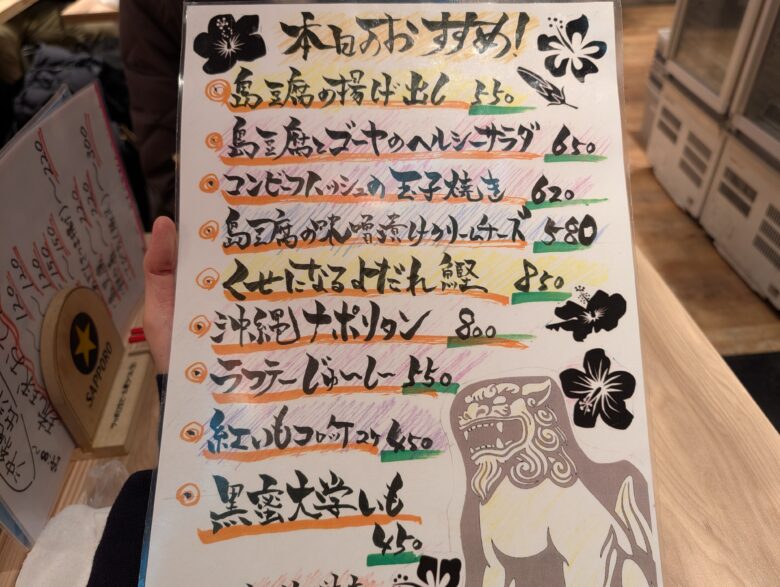 本日のおすすめ!
島豆腐の揚げ出し 550
島豆腐とゴーヤのヘルシーサラダ 650
コンビーフハッシュの玉子焼き 620
島豆腐の味噌漬けクリームチーズ 580
くせになるよだれ鰹 850
沖縄ナポリタン 800
ラフテーじゅ〜しー 550
紅いもコロッケ 2コ 450
黒蜜大学いも
450
SAPPORO
220
300
150
130
120